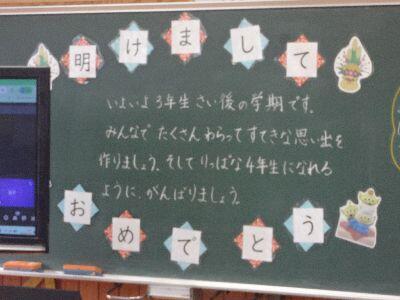 明けまして
いよいよ3年生さい後の学期です。
みんなでたくさんわらってすてきな思い出を
作りましょう。そしてりっぱな4年生になれる
ように、がんばりましょう。
おめでとう